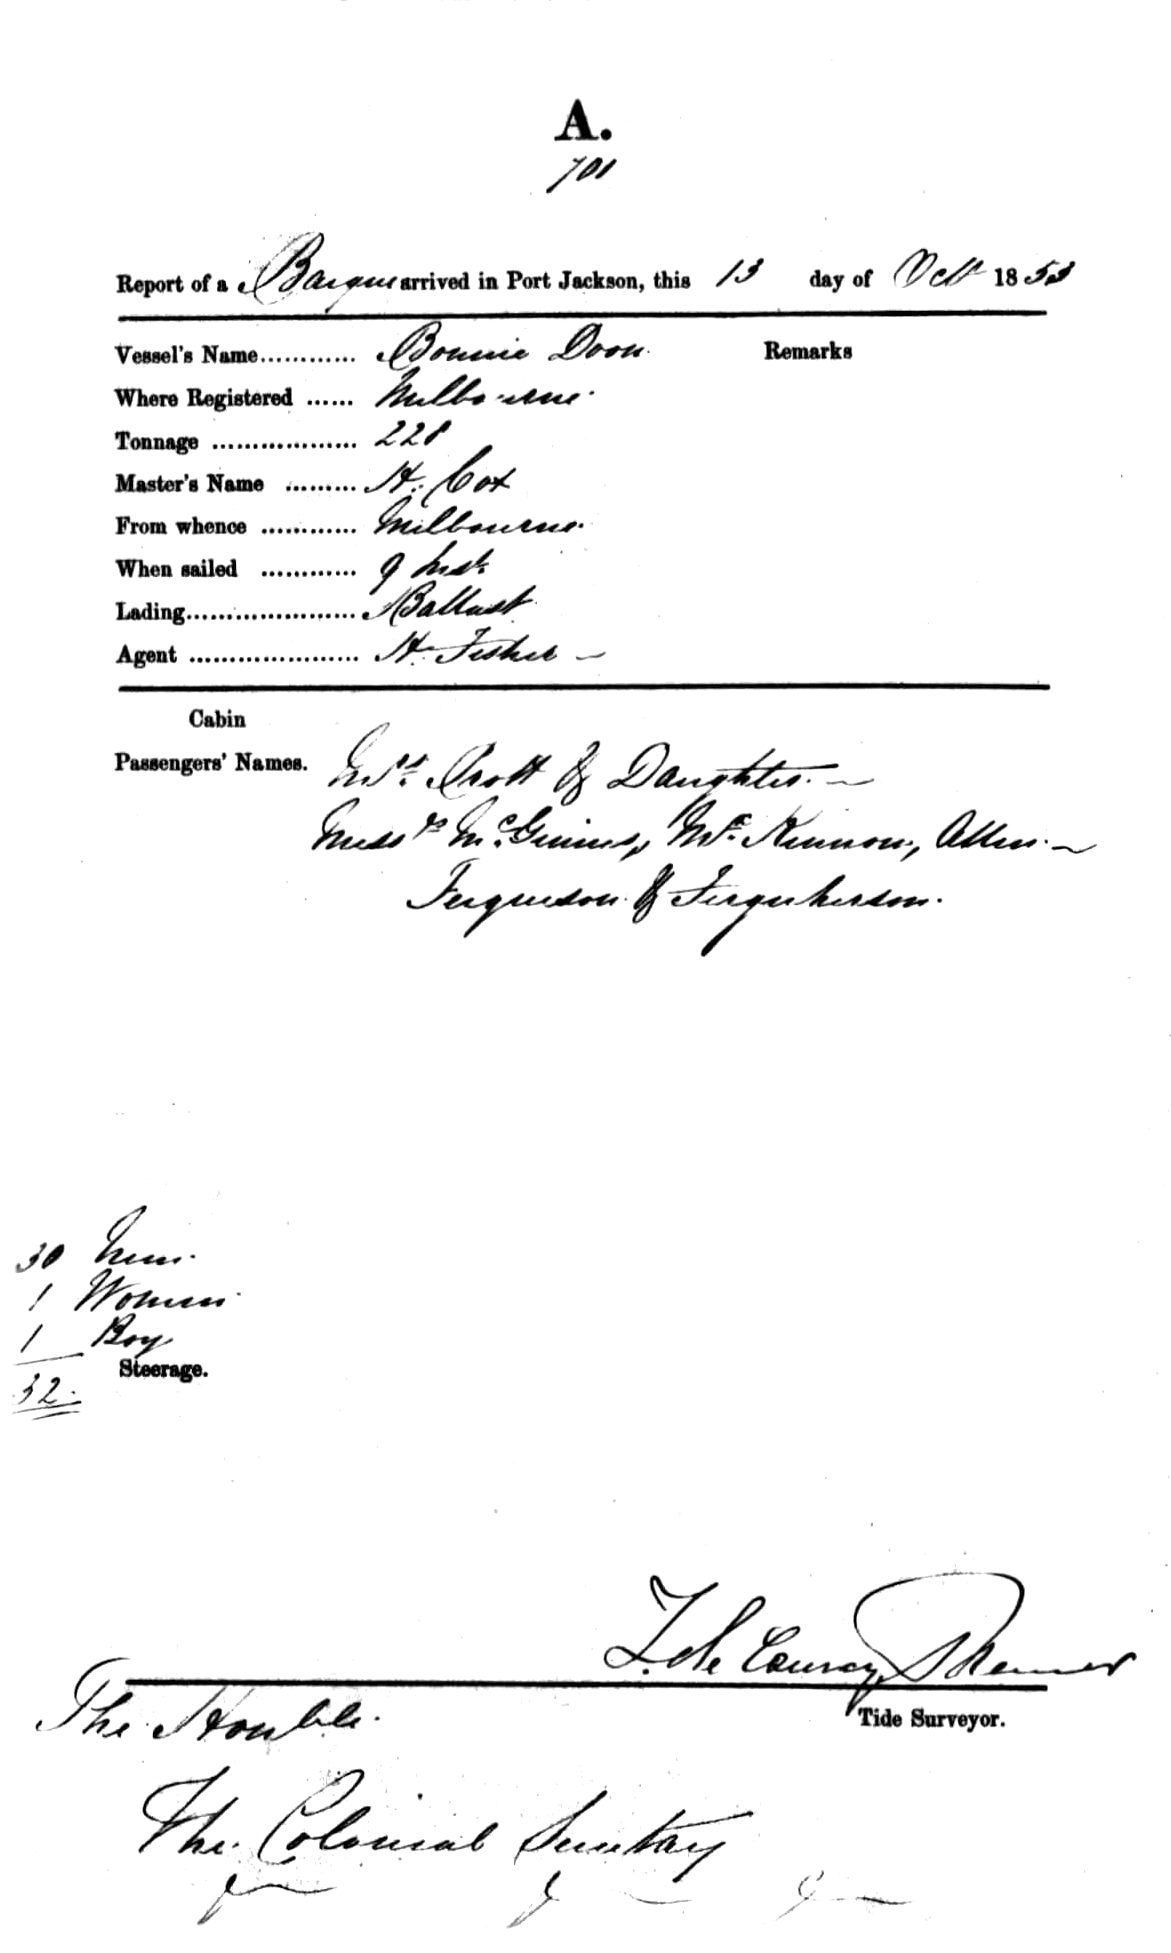 A.
701
Report of a Barque arrived in Port Jackson, this 13 day of Oct 1853
Vessel's Name............ Bonnie Doon Remarks
Where Registered ...... Melbourne.
Tonnage .................. 228
Master's Name ......... H. Cox
From whence ............ Melbourne.
When sailed ............ 9 Inst.
Lading..................... Ballast
Agent ..................... H. Fisher
Cabin
Passengers' Names. Mrs. & Daughter.
Messrs McGinnis, McKinnon, Allen.
Ferguson & Ferguherson.
30 Men.
1 Women.
1 Boy
Steerage.
32.
The Honble.
Tide Surveyor.
The Colonial Secretary